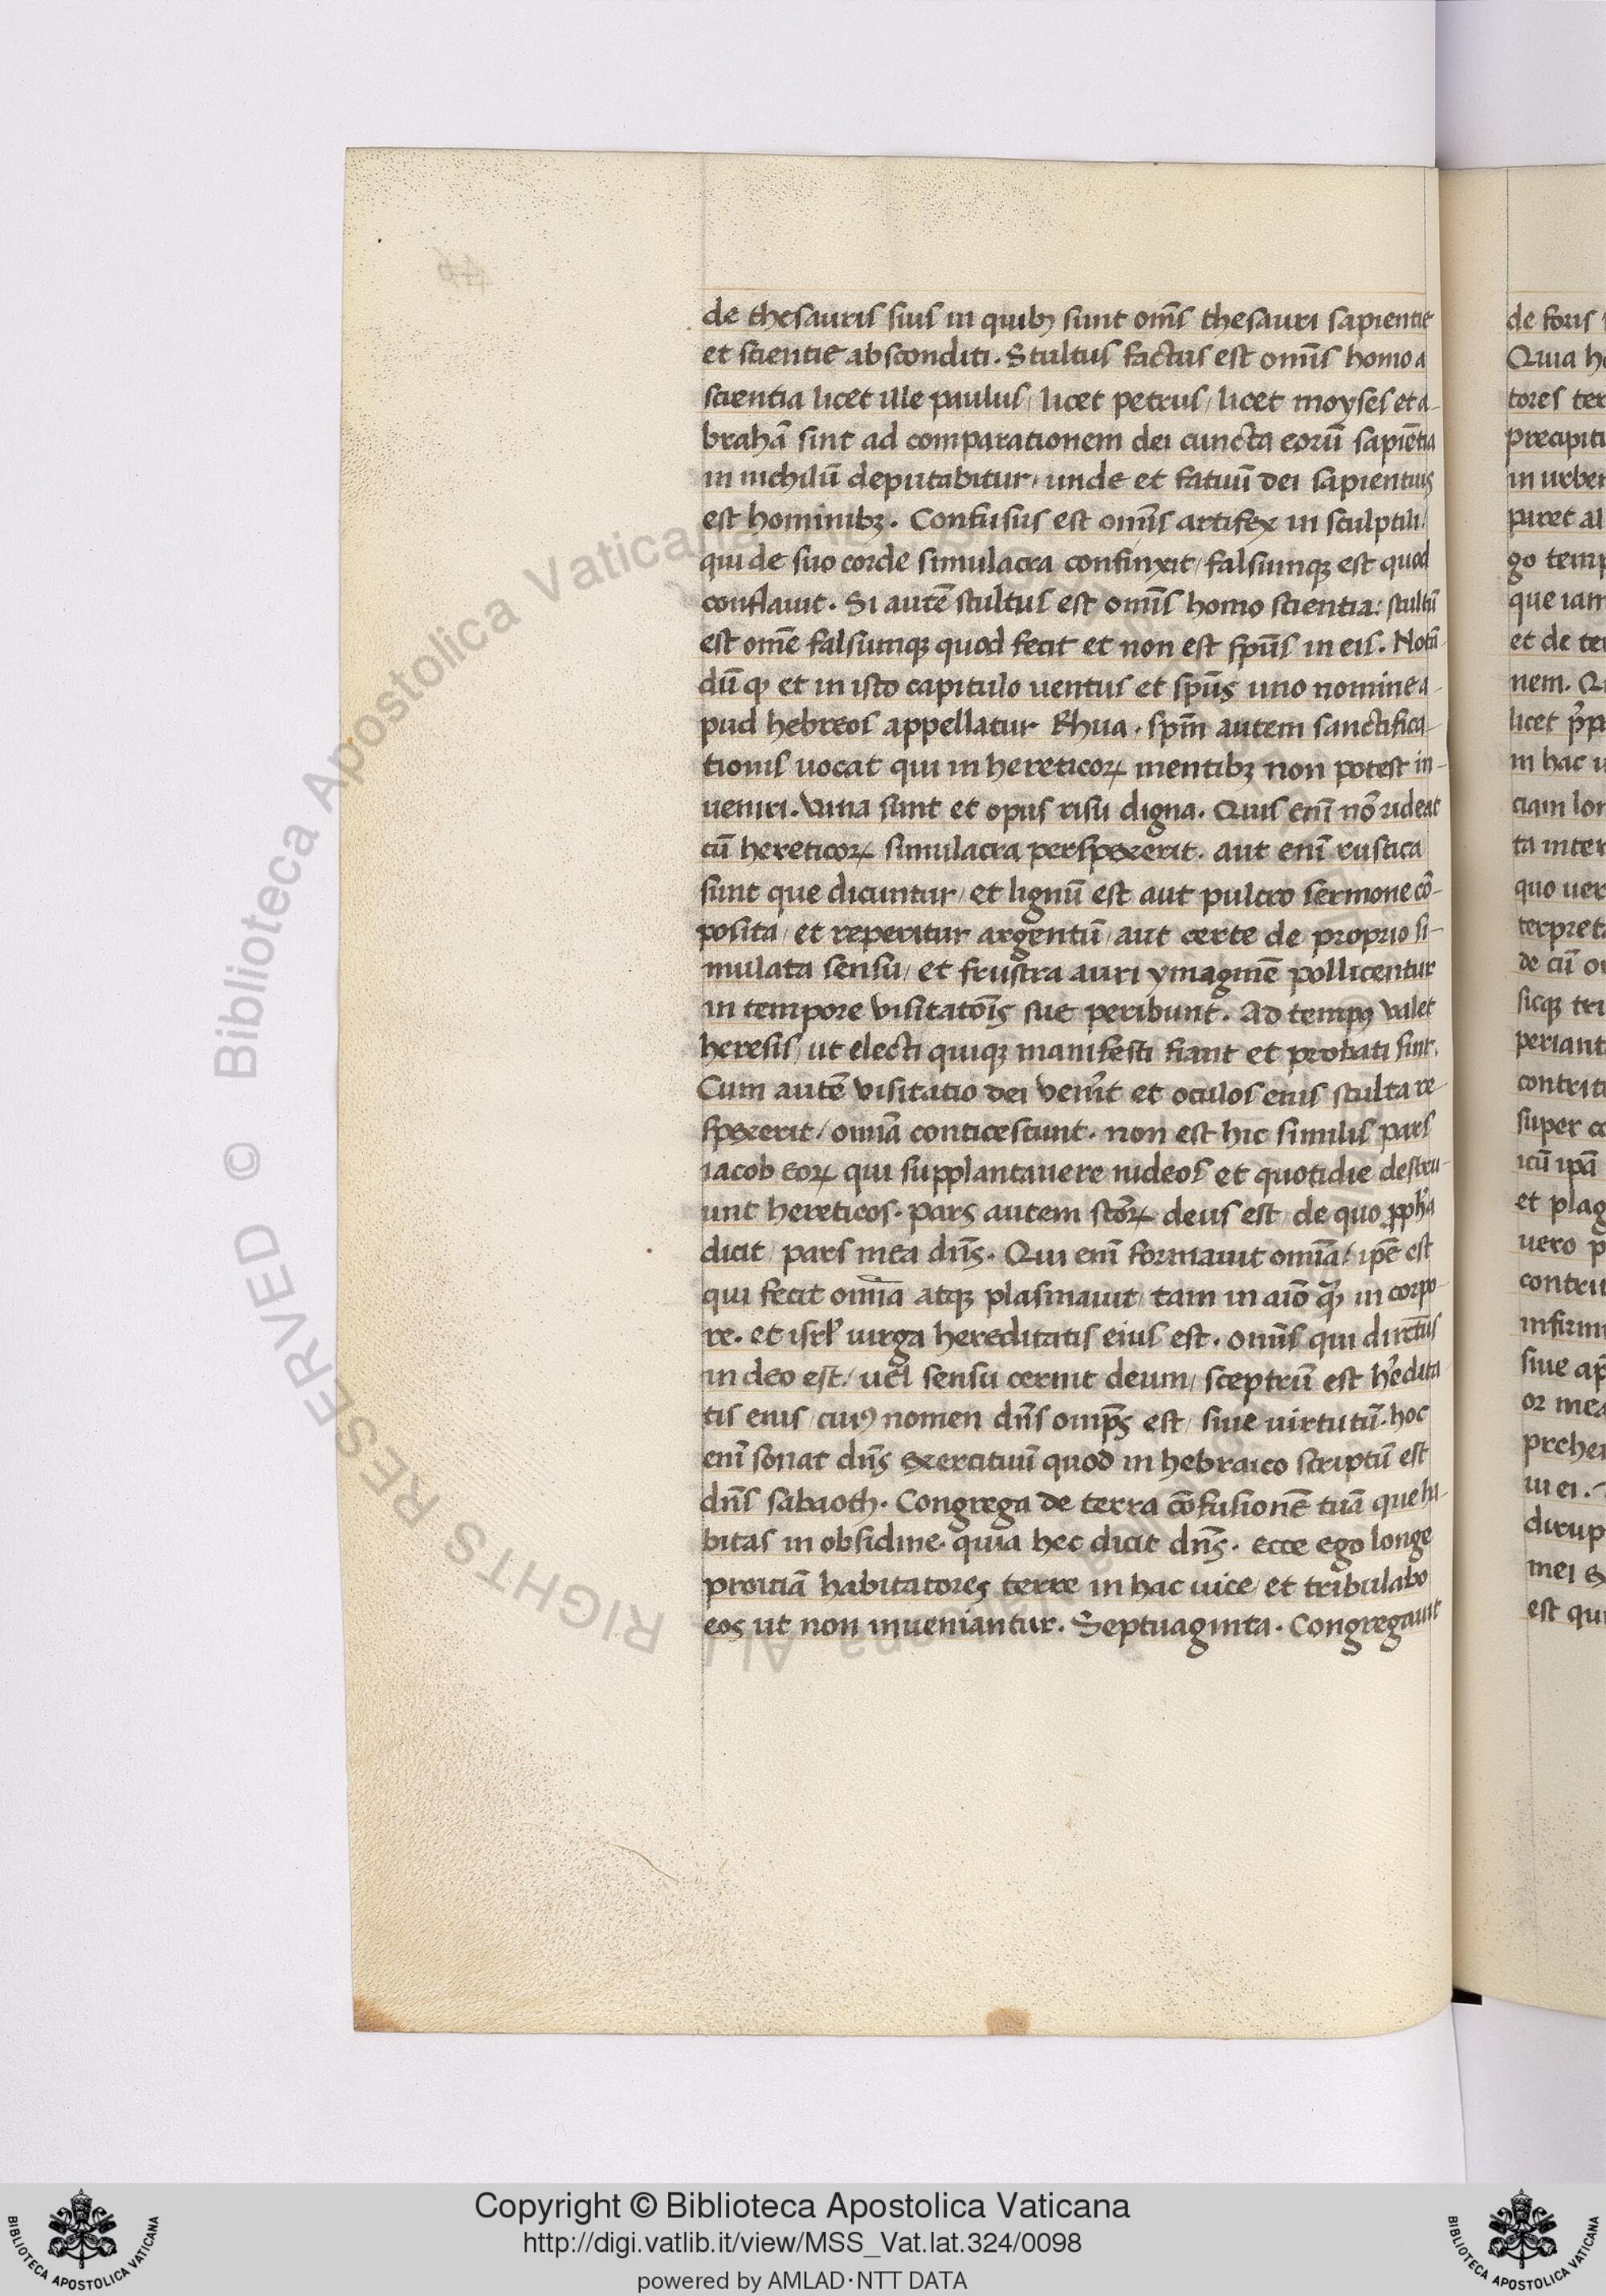 de thesauris suis in quibꝫ sunt om̄s thesauri sapientie
et scientie absconditi. Stultus factus est om̄is homo a
scientia licet ille paulus / licet petrus / licet moyses et a-
brahā sint ad comparationem dei cuncta eorū sapiētia
in nichilū deputabitur / unde et fatuū dei sapientius
est hominibꝫ. Confusus est om̄is artifex in sculptili /
qui de suo corde simulacra confinxit / falsumqꝫ est quod
conflauit. Si autē stultus est om̄is homo scientia: stultū
est om̄e falsumqꝫ quod fecit et non est sp̄us in eis. Notā-
dū ꝙ et in isto capitulo uentus et sp̄us uno nomine a-
pud hebreos appellatur Rhua. sp̄m autem sanctifica-
tionis uocat qui in hereticoꝝ mentibꝫ non potest in-
ueniri. Vana sunt et opus risu digna. Quis enī nō rideat
cū hereticoꝝ simulacra perspexerit. aut enī rustica
sunt que dicuntur / et lignū est aut pulcro sermone cō-
posita / et reperitur argentū / aut certe de proprio si-
mulata sensu / et frustra auri ymaginē pollicentur
in tempore visitatōis sue peribunt. Ad tempꝰ valet
heresis / ut electi quiqꝫ manifesti fiant et probati sint.
Cum autē visitatio dei ven̄it et oculos eius stulta re-
spexerit / omīa conticescunt. non est hic similis pars
iacob eoꝝ qui supplantauere iudeos et quotidie destru-
unt hereticos. pars autem sc̄oꝝ deus est / de quo ꝓph̄a
dicit / pars mea dn̄s. Qui enī formauit omīa / ip̄e est
qui fecit omīa atqꝫ plasmauit / tam in aīo ꝙ̄ in corpo-
re. et isrl̄ uirga hereditatis eius est. om̄is qui directus
in deo est / uel sensu cernit deum / sceptrū est h̄edita-
tis eius / cuiꝰ nomen dn̄s omp̄s est / siue uirtutū. hoc
enī sonat dn̄s exercituū quod in hebraico scriptū est
dn̄s sabaoth. Congrega de terra cōfusionē tuā que ha-
bitas in obsidine. quia hec dicit dn̄s. ecce ego longe
proiciā habitatores terre in hac uice / et tribulabo
eos ut non inueniantur. Septuaginta. Congregauit
de foris
Quia
tores
precipit
in
piret al
go
que iam
et de
nem.
licet
in hac
ciam
ta inter
quo
de cū
sicqꝫ
super
icū ip̄a
et plag
uero
siue
or mea
ui ei.
dirup
mei
est
© Biblioteca Apostolica Vaticana
ALL RIGHTS RESERVED
BIBLIOTECA APOSTOLICA VATICANA
Copyright © Biblioteca Apostolica Vaticana
http://digi.vatlib.it/view/MSS_Vat.lat.324/0098
powered by AMLAD·NTT DATA
BIBLIOTECA APOSTOLICA VATICANA